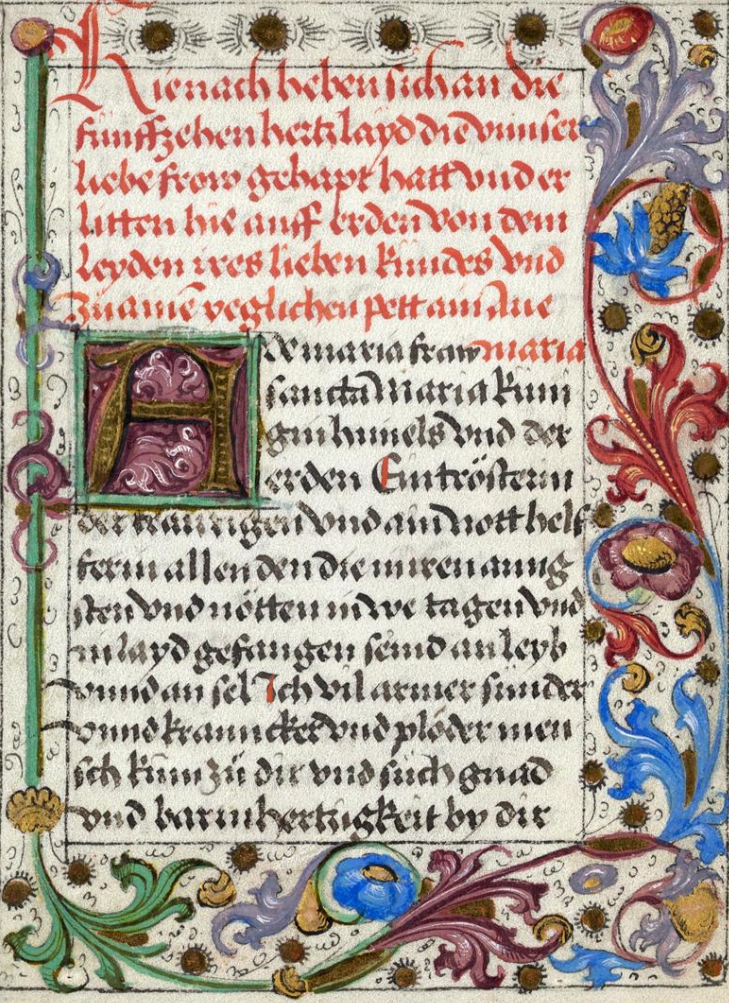 Hienach heben sich an die
funffzehen hertzlayd die vnnser
liebe frow gehapt hatt vnd er
litten hie auff erden von dem
leyden ires lieben kindes vnd
zu ainē yeglichen pett ain Aue
Aue maria fraw maria
sancta Maria kün
gin himels vnd der
erden Ein trösterin
der traurigen vnd ain nott helf
ferin allen den die in iren anng
sten vnd nötten in we tagen vnd
in layd gefangen seind an leyb
vnnd an sel Ich vil armer sünder
vnnd kranncker vnd plöder men
sch kum zů dir vnd sůch gnad
vnd barmhertzigkeit by dir